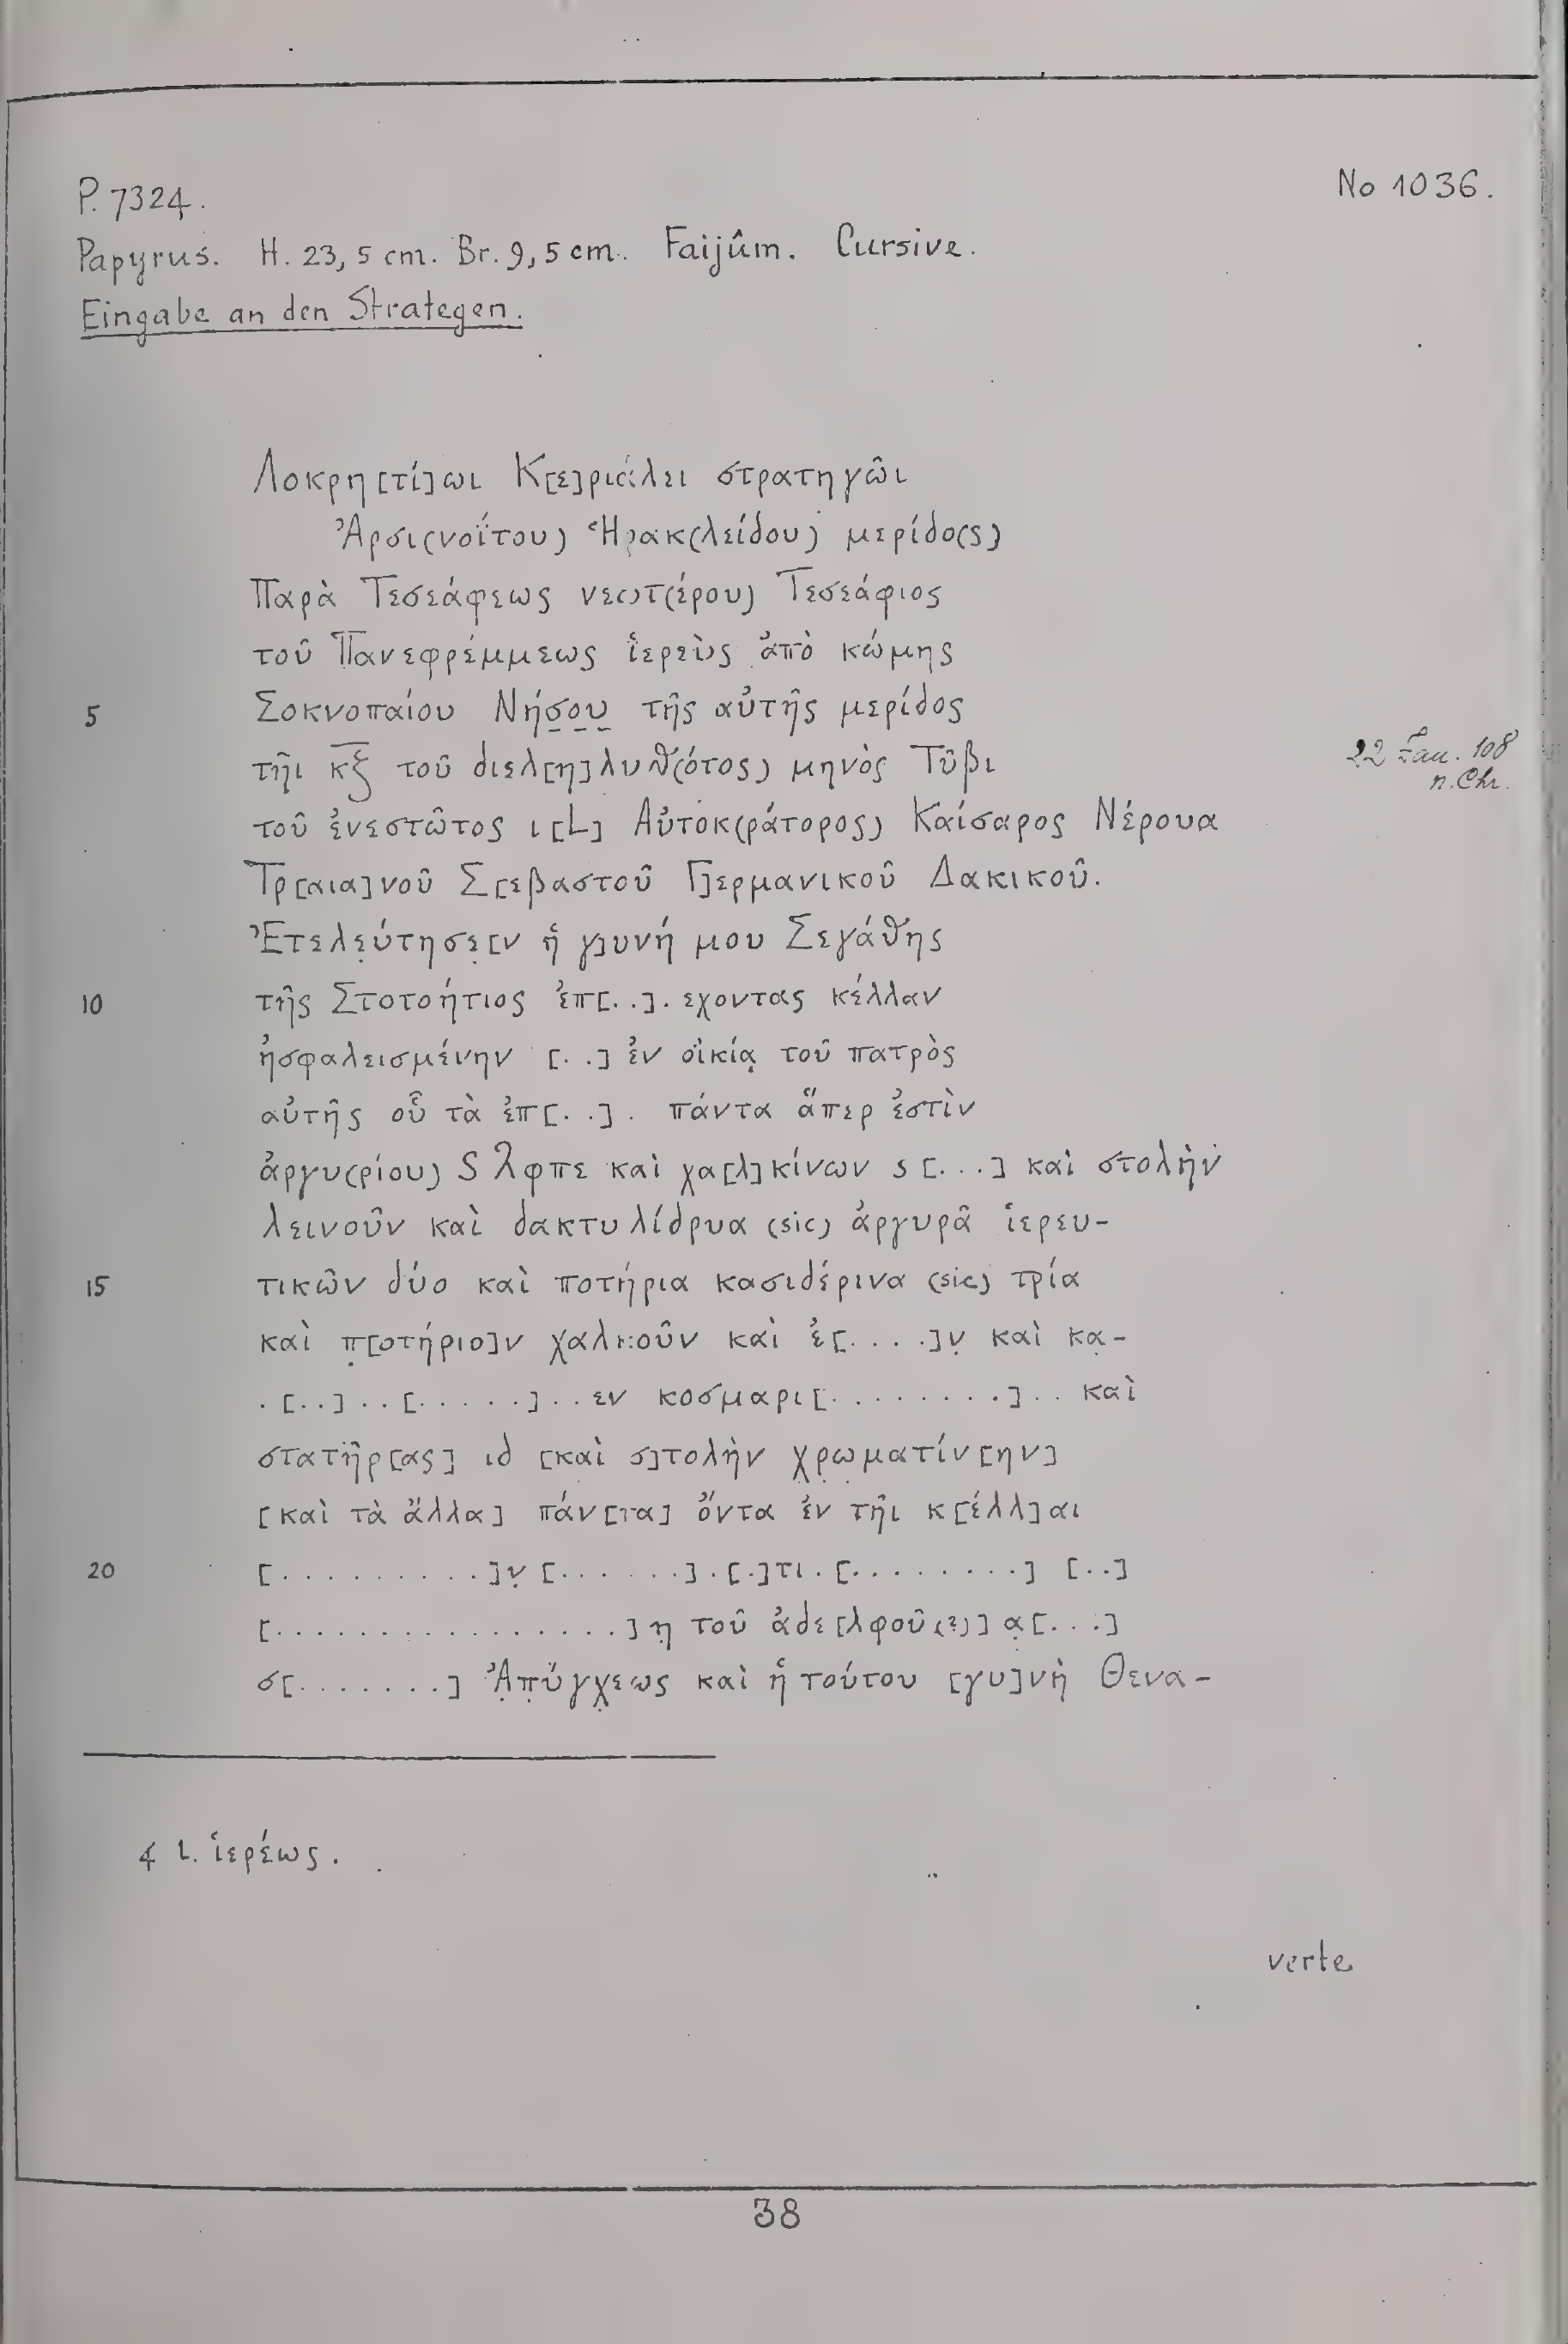 P. 7324.
No 1036.
Papyrus. H. 23,5 cm. Br. 9,5 cm. Faijûm. Cursive.
Eingabe an den Strategen.
Λοκρη[τί]ωι Κ[ε]ριάλει στρατηγῶι
Ἀρσι(νοΐτου) Ἡρακ(λείδου) μερίδο(ς)
Παρὰ Τεσεάφεως νεωτ(έρου) Τεσεάφιος
τοῦ Πανεφρέμμεως ἱερεὺς ἀπὸ κώμης
5 Σοκνοπαίου Νήσου τῆς αὐτῆς μερίδος
τῆι κξ̅ τοῦ διελ[η]λυθ(ότος) μηνὸς Τῦβι
22 Jan. 108
n. Chr.
τοῦ ἐνεστῶτος ι [L] Αὐτοκ(ράτορος) Καίσαρος Νέρουα
Τρ[αια]νοῦ Σ[εβαστοῦ Γ]ερμανικοῦ Δακικοῦ.
Ἐτελεύτησε̣[ν ἡ γ]υνή μου Σεγάθης
10 τῆς Στοτοήτιος ἐπ[..]. εχοντας κέλλαν
ἠσφαλεισμένην [..] ἐν οἰκίᾳ τοῦ πατρὸς
αὐτῆς οὗ τὰ ἐπ[..]. πάντα ἅπερ ἐστὶν
ἀργυ(ρίου) S λφπε καὶ χα[λ]κίνων s [...] καὶ στολὴν
λεινοῦν καὶ δακτυλίδρυα (sic) ἀργυρᾶ ἱερευ-
15 τικῶν δύο καὶ ποτήρια κασιδέρινα (sic) τρία
καὶ π̣[οτήριο]ν χαλκοῦν καὶ ἐ[....]ν̣ καὶ κα̣-
.[..]..[.....]..εν κοσμαρι[........].. καὶ
στατῆρ[ας] ιδ [καὶ σ]τολὴν χ̣ρ̣ω̣ματίν[ην]
[καὶ τὰ ἄλλα] πάν[τα] ὄντα ἐν τῆι κ[έλλ]αι
20 [.........]ν̣ [......].[.]τι.[........] [..]
[................]η̣ τοῦ ἀδε[λφοῦ(?)] α̣[...]
σ[.......] Ἀ̣π̣ύγχ̣εως καὶ ἡ τούτου [γυ]νὴ Θενα-
4 l. ἱερέως.
verte
38